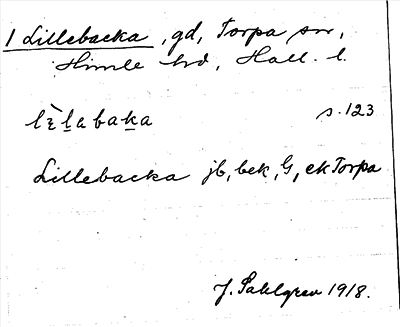 1 Lillebacka, gd, Torpa sn,
Himle hd, Hall. l.
s. 123
Lillebacka jb, bek, G, ek Torpa
J. Sahlgren 1918.